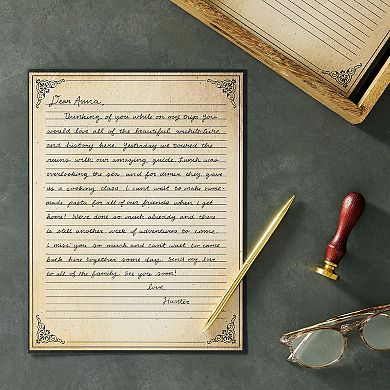 Dear Anna,
Thinking of you while on my trip. You
would love all of the beautiful architecture
and history here. Yesterday we toured the
ruins with our amazing guide. Lunch was
overlooking the sea and for dinner they gave
us a cooking class. I can't wait to make home-
made pasta for all of our friends when I get
home! We've done so much already and there
is still another week of adventures to come.
I miss you so much and can't wait to come
back here together some day. Send my love
to all of the family. See you soon!
Love,
Hunter